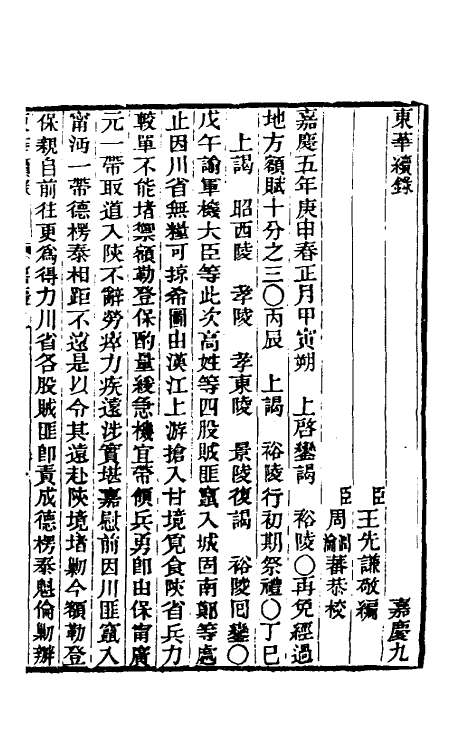 東華續錄　嘉慶九
臣王先謙敬編
臣周潤蕃瀹蕃恭校
嘉慶五年庚申春正月甲寅朔　上啓鑾謁　裕陵〇再免經過
地方額賦十分之三〇丙辰　上謁　裕陵行初期祭禮〇丁巳
上謁　昭西陵　孝陵　孝東陵　景陵復謁　裕陵回鑾〇
戊午諭軍機大臣等此次高姓等四股賊匪竄入城固南鄭等處
止因川省無糧可掠希圖由漢江上游搶入甘境覓食陝省兵力
較單不能堵禦額勒登保酌量緩急機宜帶領兵勇卽由保甯廣
元一帶取道入陝不辭勞瘁力疾遠涉實堪嘉慰前因川匪竄入
甯沔一帶德楞泰相距不遠是以令其遠赴陝境堵勦今額勒登
保親自前往更爲得力川省各股賊匪卽責成德楞泰魁倫勦辦